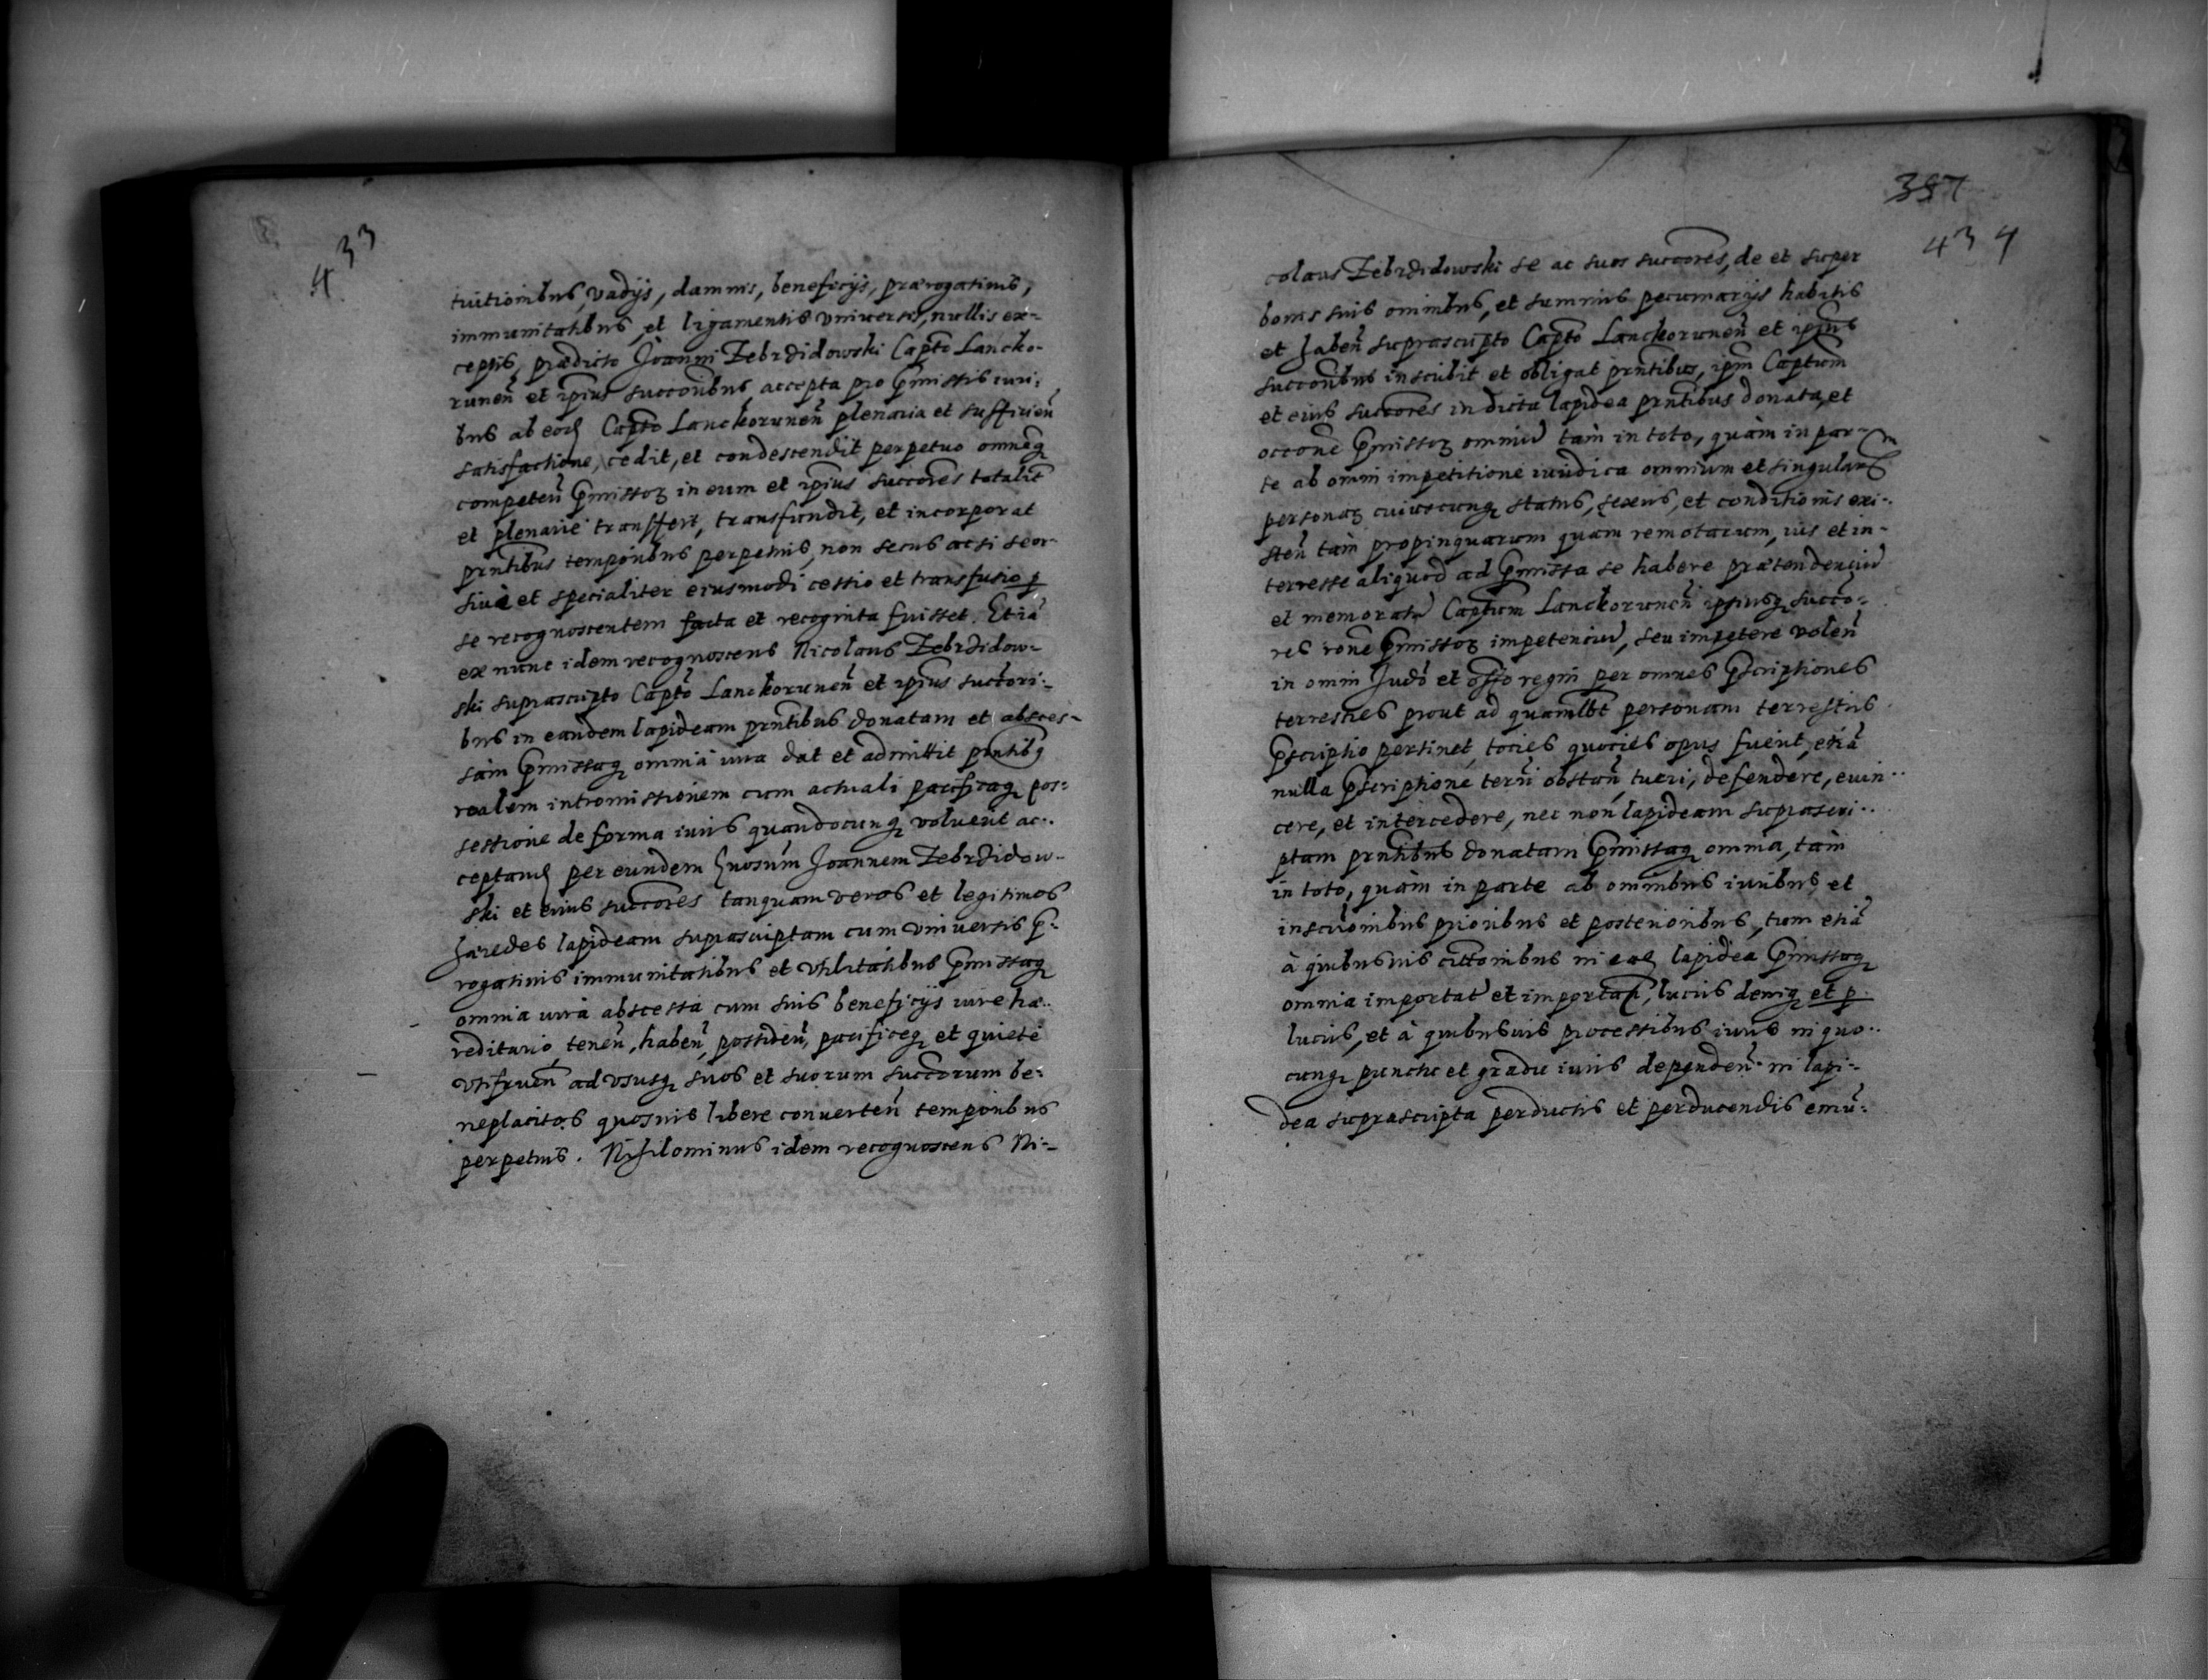 433
tuitionibus, vadijs, damnis, beneficijs, prærogatiuis,
immunitatibus, et ligamentis vniuersis, nullis ex-
ceptis, prædicto Joanni Zebrzidowski Capto Lancko-
runeñ et ipius succoribus, accepta pro pmissis iuri-
bus ab eod Capto Lanckoruneñ plenaria et sufficieñ
satisfactione, cedit, et condescendit perpetuo omneq
competeñ pmissor in eum et ipius succores totalit
et plenarie transfert, transfundit, et incorporat
prntibus temporibus perpetuis, non secus ac si seor-
siuè et specialiter eiusmodi cessio et transfusio p
se recognoscentem facta et recognita fuisset. Etiã
ex nunc idem recognoscens Nicolaus Zebrzidow-
ski suprascripto Capto Lanckoruneñ et ipius succori-
bus in eandem lapideam prntibus donatam et absces-
sam pmissaq omnia iura dat et admittit prntibq
realem intromissionem cum actuali pacificaq pos-
sessione de forma iuris quandocunq voluerit ac-
ceptand per eundem Gnosum Joannem Zebrzidow-
ski et eius succores tanquam veros et legitimos
hæredes lapideam suprascriptam cum vniuersis p-
rogatiuis immunitatibus et vtilitatibus pmissaq
omnia iura abscessa cum suis beneficijs iure hæ-
reditario, teneñ, habeñ, possideñ, pacificeq et quietè
vtifrueñ ad vsusq suos et suorum succorum be-
neplacitos quosuis libere conuerteñ temporibus
perpetuis. Nihilominus idem recognoscens Ni-
387
434
colaus Zebrzidowski se ac suos succores, de et super
bonis suis omnibus, et summis pecuniarijs habitis
et habeñ suprascripto Capto Lanckoruneñ et ipius
succoribus inscribit et obligat prntibus, ipm Captum
et eius succores in dicta lapidea prntibus donata, et
occone pmissor omniũ tàm in toto, quàm in par-
te ab omni impetitione iuridica omnium et singularum
personar cuiuscunq status, sexus, et conditionis exi-
steñ tàm propinquarum quam remotarum, ius et in-
teresse aliquod ad pmissa se habere prætendenciũ
et memoratũ Captum Lanckoruneñ ipsiusq succo-
res rone pmissor impetenciũ, seu impetere voleñ
in omni Judo et offo regni per omnes pscriptiones
terrestres prout ad quamlbt personam terrestris
pscriptio pertinet, tocies quocies opus fuerit, etiã
nulla pscriptione terri obstañ, tueri, defendere, euin-
cere, et intercedere, nec non lapideam suprascri-
ptam prntibus donatam pmissaq omnia, tàm
in toto, quàm in parte ab omnibus iuribus et
inscrionibus prioribus et posterioribus, tum etiã
à quibusuis cittonibus in ead lapidea pmissaq
omnia importat et importañ, lucris deniq et p
lucris, et à quibusuis processibus iuris in quo-
cunq puncto et gradu iuris dependeñ in lapi-
dea suprascripta perductis et perducendis emũ-